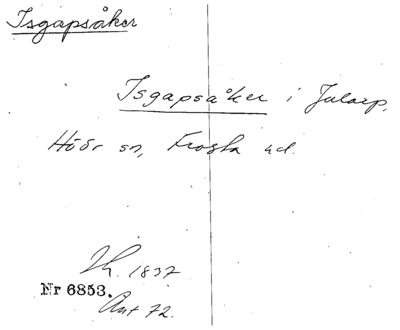 Isgapsåker
Isgapsåker i Jularp,
Höör sn, Frosta hd.
Lh. 1837
Nr 6853.
Ant 72.